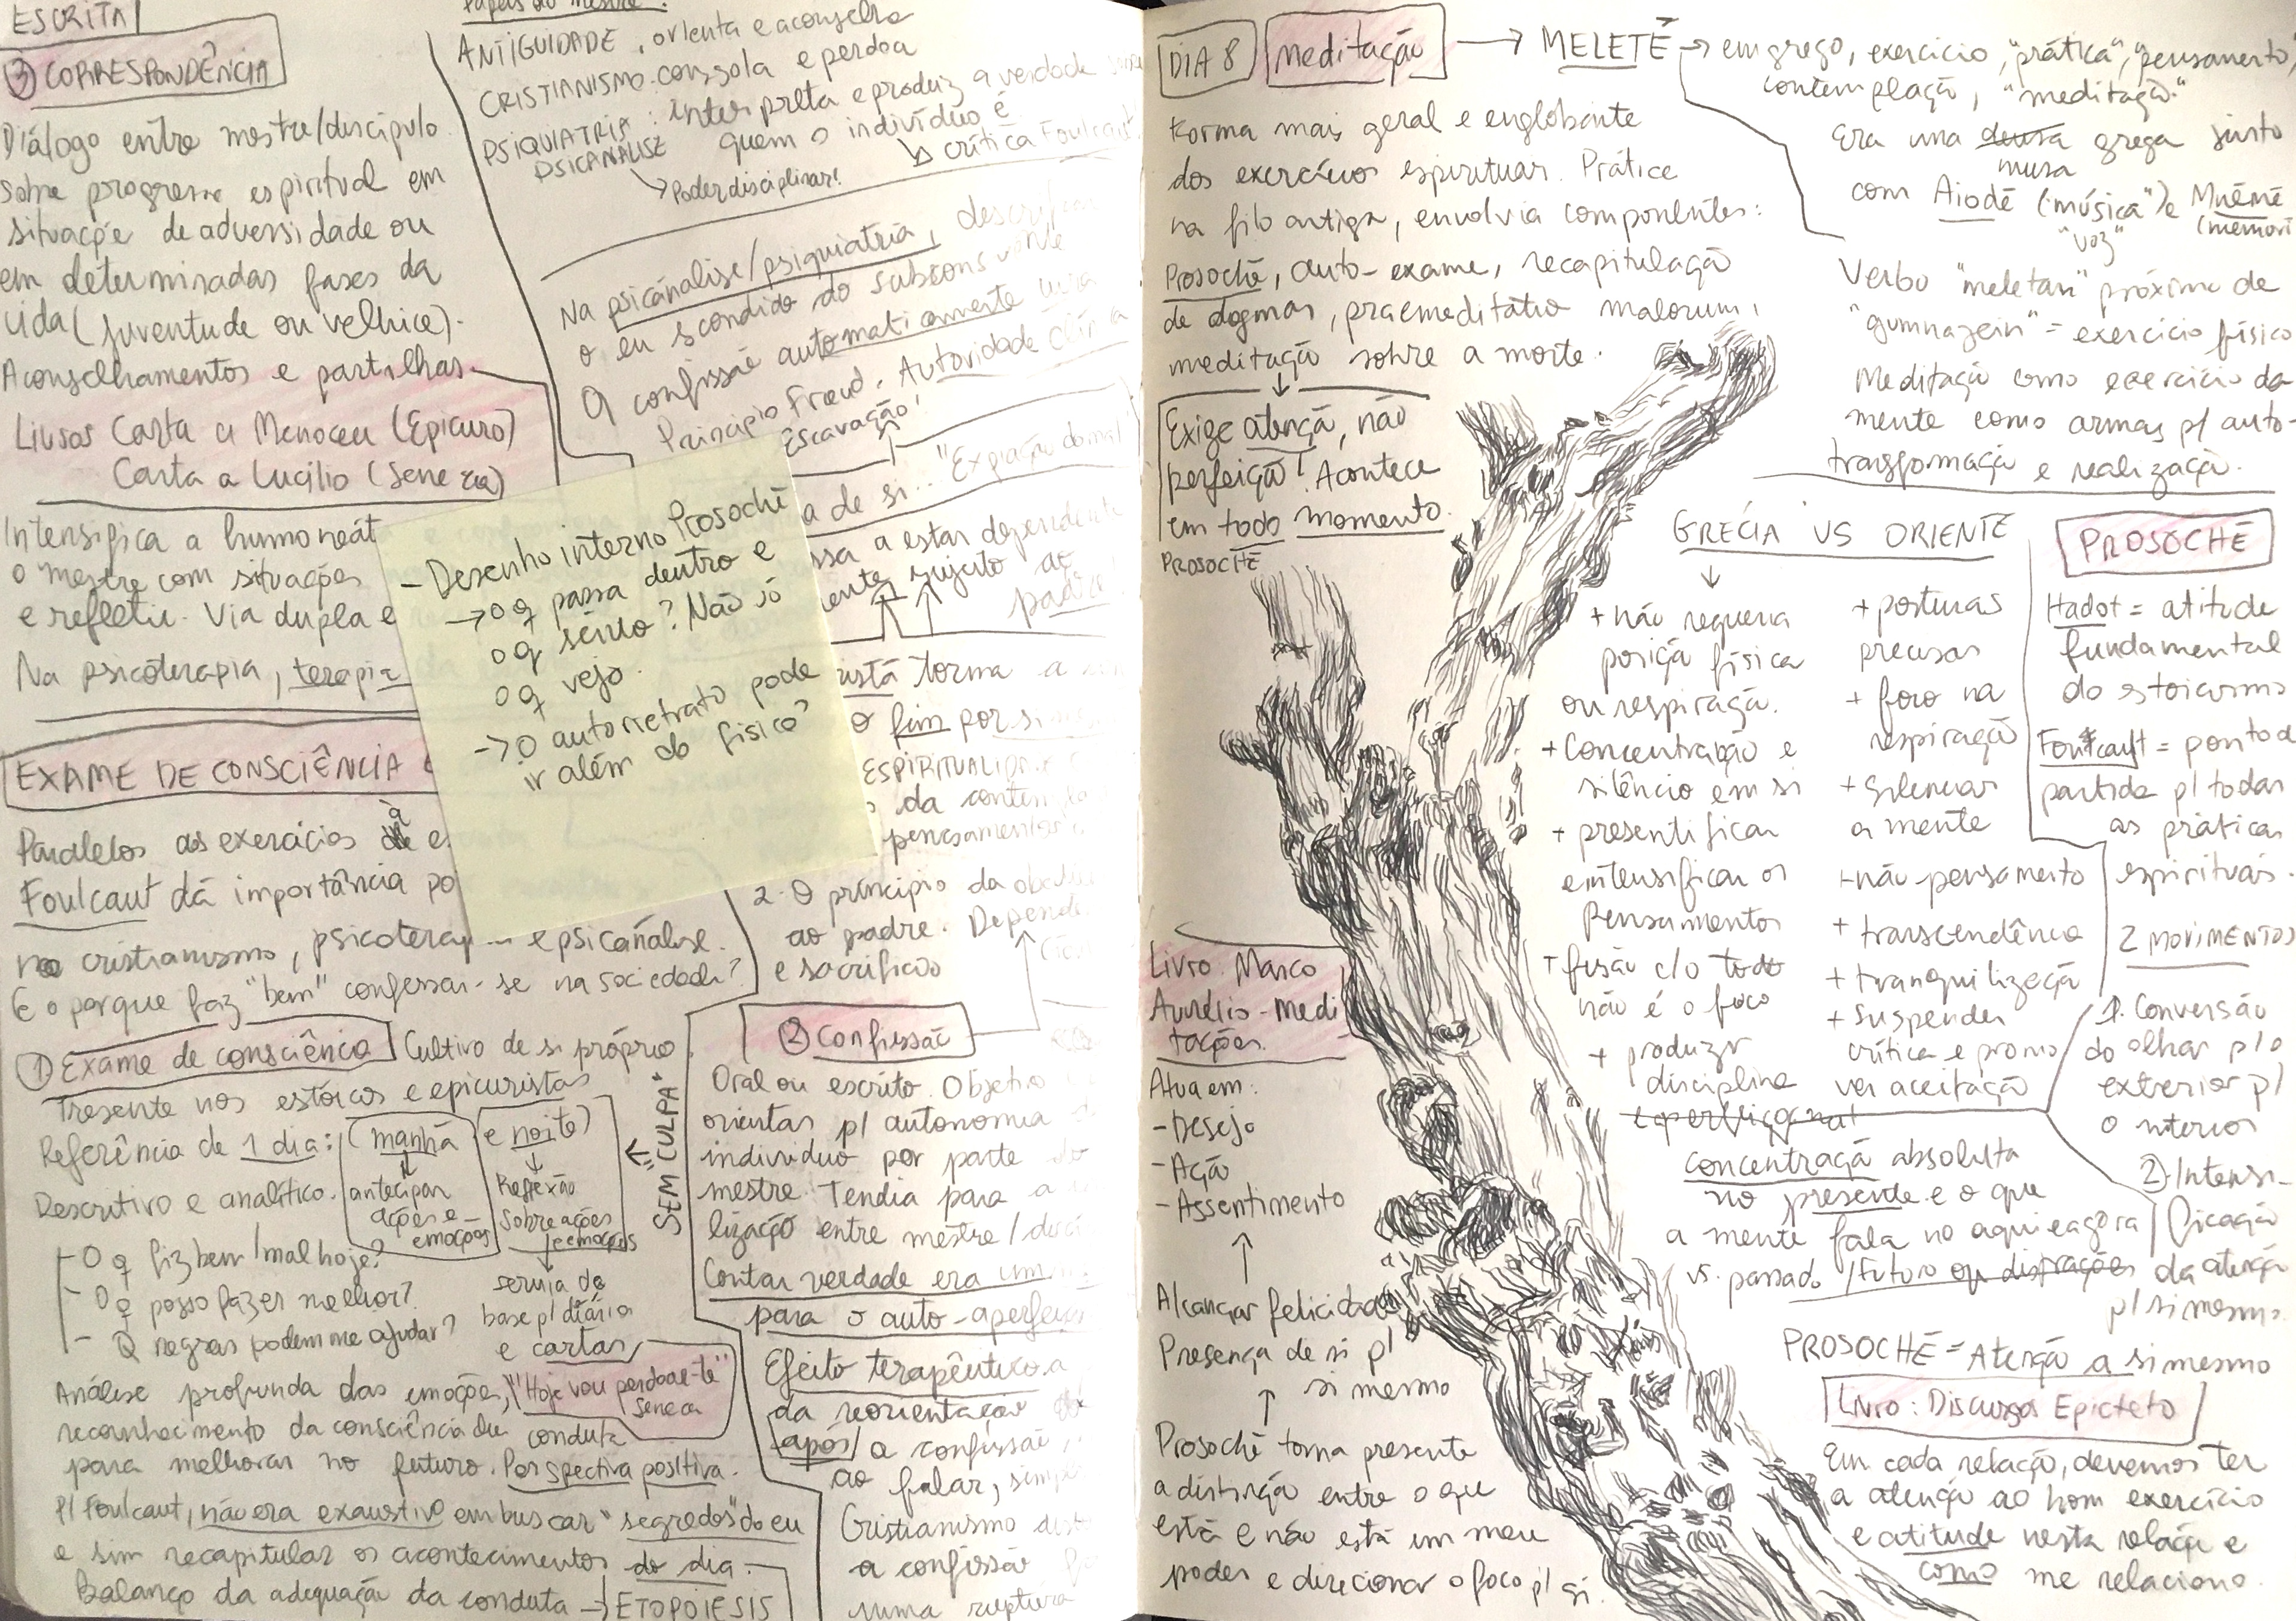 ESCRITA
③ CORRESPONDÊNCIA
Diálogo entre mestre/discípulo
sobre progresso espiritual em
situação de adversidade ou
em determinadas fases da
vida (juventude ou velhice).
Aconselhamentos e partilhas.
Livros Carta a Meneceu (Epicuro)
Carta a Lucílio (Seneca)
Intensifica a
o mestre com situações
e refletir. Via dupla e
Na psicoterapia, terapia
EXAME DE CONSCIÊNCIA
Paralelos aos exercícios
Foulcaut dá importância
no cristianismo, psicoterap e psicanálise.
E o porque faz "bem" confessar-se na sociedade?
① Exame de consciência
Cultivo de si próprio
Presente nos estoicos e epicuristas
Referência de 1 dia: (manhã e noite)
Descritivo e analítico.
antecipar
ações e
emoções
Reflexão
sobre ações
e emoções
"SEM CULPA"
- O q fiz bem/mal hoje?
- O q posso fazer melhor?
- Q regras podem me ajudar?
servia de
base p/ diário
e cartas
Análise profunda das emoções,
"Hoje vou perdoar-te"
Seneca
reconhecimento da consciência da conduta
para melhorar no futuro. Perspectiva positiva.
P/ Foulcaut, não era exaustivo em buscar "segredos" do eu
e sim recapitular os acontecimentos do dia.
Balanço da adequação da conduta → ETOPOIESIS
Papéis do mestre:
ANTIGUIDADE, orienta e aconselha
CRISTIANISMO: consola e perdoa
PSIQUIATRIA
PSICANÁLISE
: interpreta e produz a verdade
quem o indivíduo é
crítica Foulcaut
→ Poder disciplinar!
Na psicanálise/psiquiatria,
o eu escondido do
A confissão automaticamente
Princípio Freud. Autoridade
Escavação!
a de si... "Expiação do mal
ssa a estar dependente
ente, sujeito ao
padre
- Desenho interno Prosochē
→ o q passa dentro e
o q sinto? Não só
o q vejo.
→ O autorretrato pode
ir além do físico?
istã torna a
o fim por si
ESPIRITUALID
da contem
pensamentos
2. O princípio da
ao padre. Depend
e sacrifício
② Confissão
Oral ou escrito. Objetivo
orientar p/ autonomia
indivíduo por parte do
mestre. Tendia para a
lização entre mestre/
Contar verdade era um
para o auto-aperfei
Efeito terapêutico
da reorientação
após a confissão
ao falar,
Cristianismo
a confissão
numa ruptura
DIA 8
Meditação → MELETĒ → em grego, exercício, "prática", "pensamento",
contemplação, "meditação".
Era uma deusa grega junto
musa
com Aiodē ("música") e Mnēmē
"voz"
(memóri
Forma mais geral e englobante
dos exercícios espirituais. Prática
na filo antiga, envolvia componentes:
Prosochē, auto-exame, recapitulação
de dogmas, praemeditatio malorum,
meditação sobre a morte.
Verbo "meletan" próximo de
"gumnazein" = exercício físico
Meditação como exercício da
mente como armas p/ auto-
transformação e realização.
Exige atenção, não
perfeição! Acontece
em todo momento.
PROSOCHĒ
GRÉCIA VS ORIENTE
+ não requeria
posição física
ou respiração.
+ Concentração e
silêncio em si
+ presentificar
e intensificar os
pensamentos
+ fusão c/o todo
não é o foco
+ produzir
disciplina
e perfeiçoar
+ posturas
precisas
+ foco na
respiração
+ silenciar
a mente
+ não pensamento
+ transcendência
+ tranquilização
+ suspender
crítica e promo
ver aceitação
PROSOCHĒ
Hadot = atitude
fundamental
do estoicismo
Foulcault = ponto d
partida p/ todas
as práticas
espirituais.
2 MOVIMENTOS
1. Conversão
do olhar p/o
exterior p/
o interior
②. Intensi-
ficação
da atenção
p/ si mesmo.
Concentração absoluta
no presente e o que
a mente fala no aqui e agora
vs. passado/futuro ou distrações
PROSOCHĒ = Atenção a si mesmo
Livro: Discursos Epicteto
Em cada relação, devemos ter
a atenção ao bom exercício
e atitude nesta relação e
como me relaciono.
Livro. Marco
Aurélio - Medi
tações.
Atua em:
- Desejo
- Ação
- Assentimento
Alcançar felicidade
Presença de si p/
si mesmo
Prosochē torna presente
a distinção entre o que
está e não está em meu
poder e direcionar o foco p/ si.